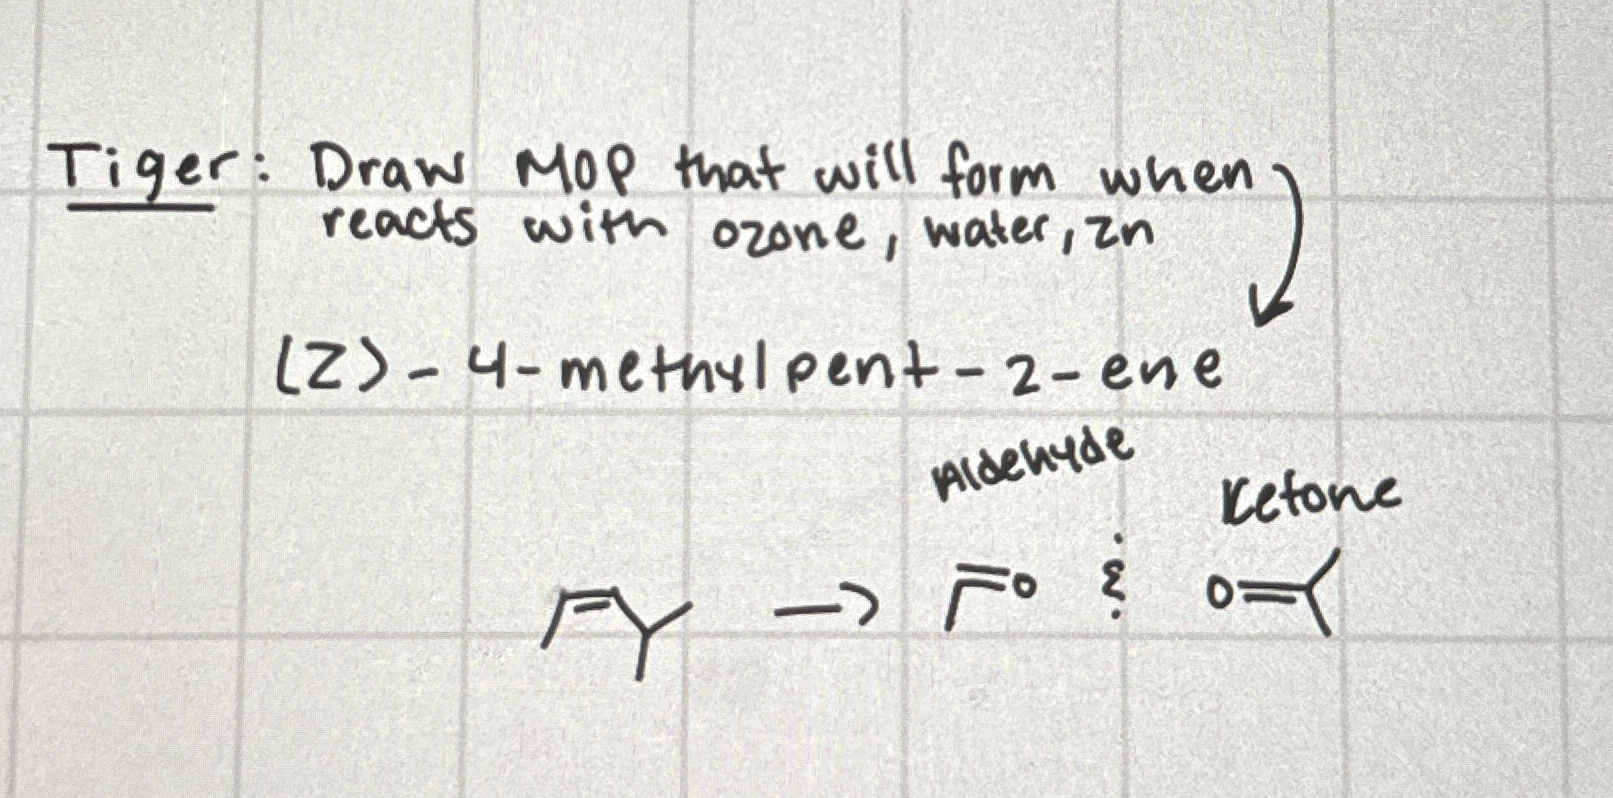 Tiger: Draw MOP that will form when
reacts with ozone, water, Zn
(Z)-4-methylpent-2-ene
Aldehyde
Ketone
→ O & O